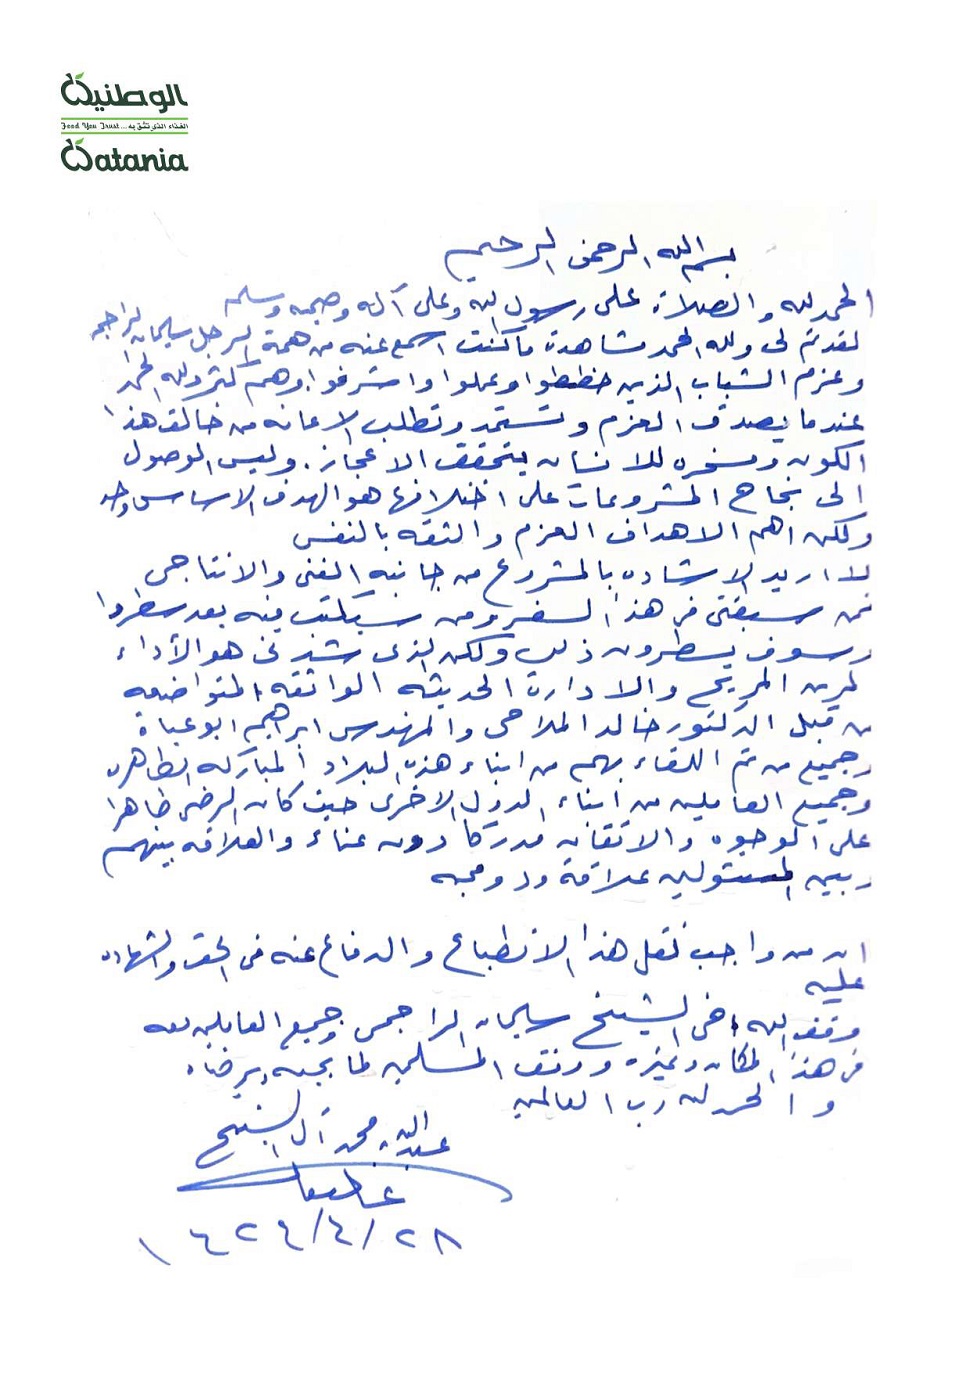 الوطنية
Food You Trust ... الغذاء الذي تثق به
Watania
بسم الله الرحمن الرحيم
الحمد لله والصلاة على رسول الله وعلى آله وصحبه وسلم
لقد تم لي ولله الحمد مشاهدة ما كنت اسمع عنه من همة الرجل سليمان الراجحي
وعزم الشباب الذين خططوا وعملوا واشرفوا وهم كثر ولله الحمد
عندما يصدق العزم وتستمر وتطلب الاعانه من خالق هذا
الكون ومسخره للانسان يتحقق الاعجاز. وليس الوصول
الى نجاح المشروعات على اختلافها هو الهدف الاساسي وحده
ولكن اهم الاهداف العزم والثقه بالنفس
لا اريد الاشاده بالمشروع من جانبه الفني والانتاجي
فمن سبقني في هذا السفر ومن سيكتب فيه بعد سطروا
وسوف يسطرون ذلك ولكن الذي شدني هو الأداء
المريح والادارة الحديثه الواثقه المتواضعه
من قبل الدكتور خالد الملاحي والمهندس ابراهيم ابوعباة
وجميع من تم اللقاء بهم من ابناء هذه البلاد المباركه الطاهره
وجميع العاملين من ابناء الدول الاخرى حيث كان الرضى ظاهرا
على الوجوه والاتقان مدركا دون عناء والعلاقه بينهم
وبين المسئولين علاقة ود ومحبه
ان من واجب نقل هذا الانطباع والدفاع عنه في الحق والشهاده
عليه
وفق الله اخي الشيخ سليمان الراجحي وجميع العاملين معه
في هذا المكان وغيره ووفق المسلمين لما يحبه ويرضاه
والحمد لله رب العالمين
عبدالله محمد آل الشيخ
١٤٢٤/٤/٢٨